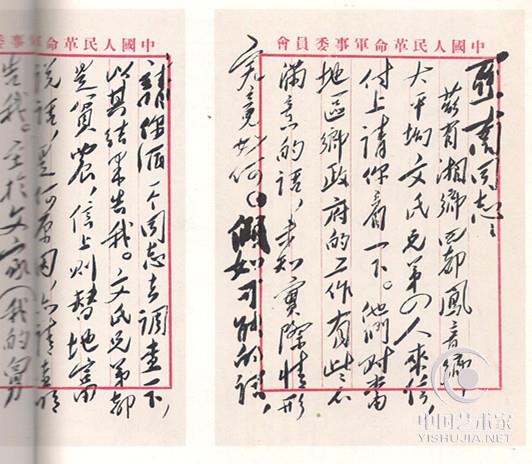 中國人民革命軍事委員會
亞南同志：
茲有湘鄉四都鳳音鄉
大平坳文氏兄弟四人來信，
付上請你看一下。他們對當
地區鄉政府的工作有些不
滿意的話，未知實際情形
究竟如何。假如可能的話，
中國人民革命軍事委
請你派一个同志去調查一下，
以其結果告我。文氏兄弟都
是貧農，信上則替地富
說話，是何原因，亦請查明
告我。至於文家（我的舅
中国艺术家
YISHUJIA.NET